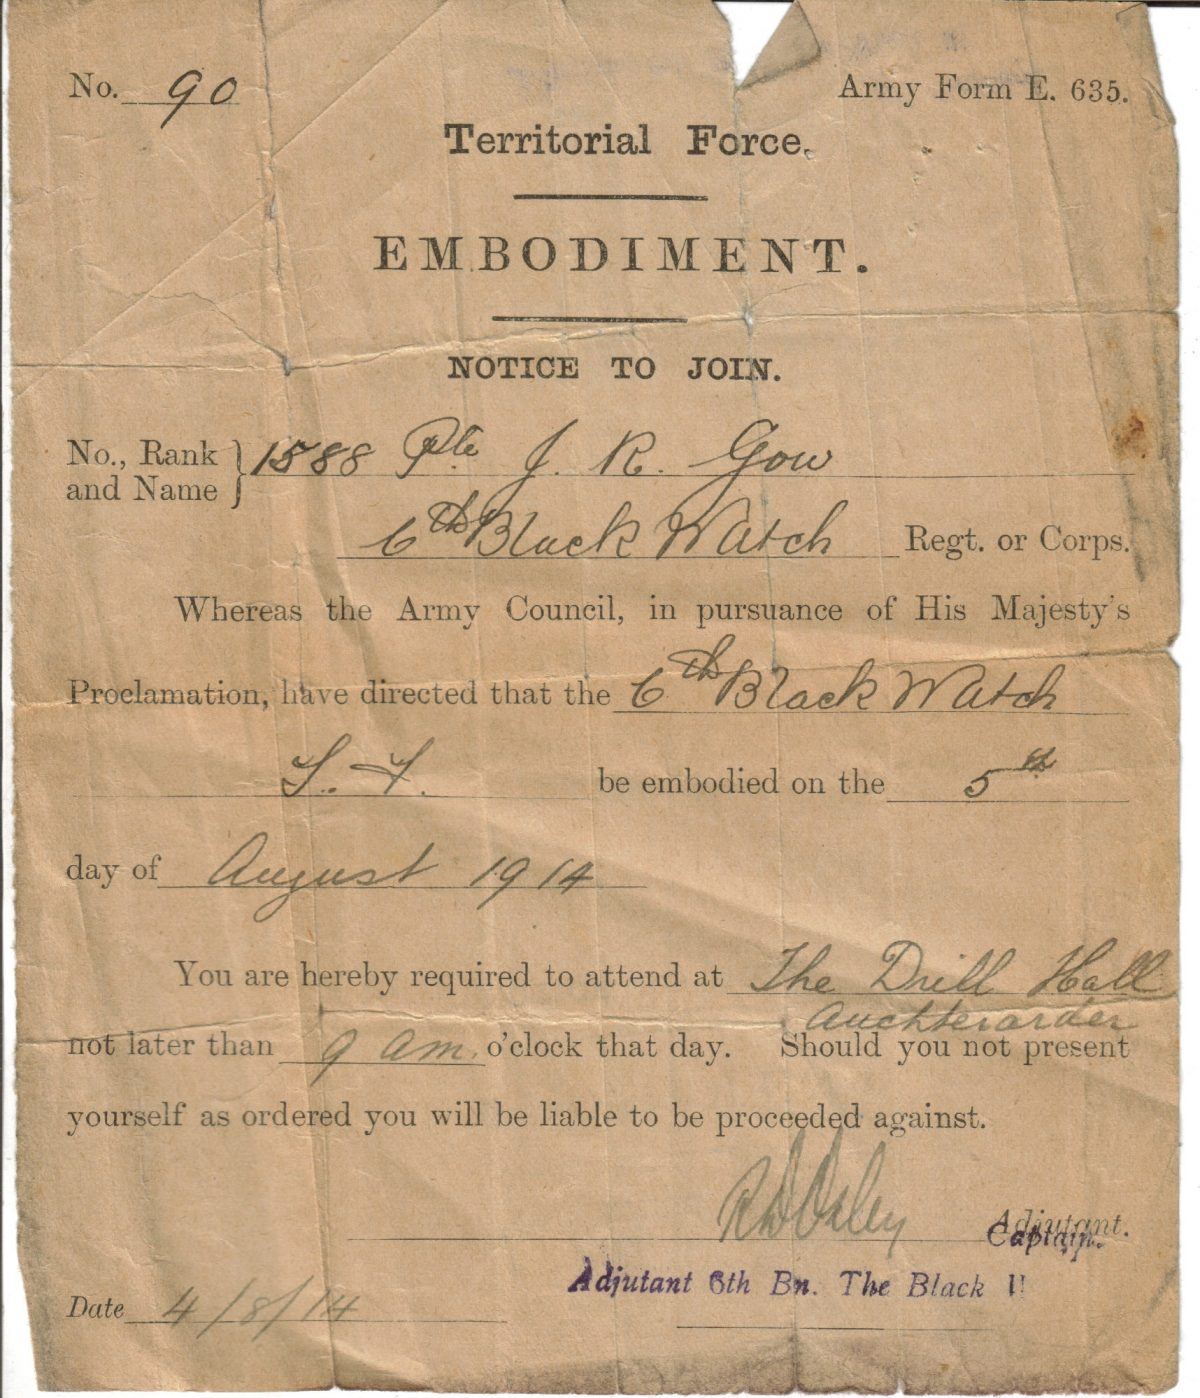 No. 90
Army Form E. 635.
Territorial Force.
EMBODIMENT.
NOTICE TO JOIN.
No., Rank and Name } 1588 Pte J. R. Gow
6th Black Watch Regt. or Corps.
Whereas the Army Council, in pursuance of His Majesty's
Proclamation, have directed that the 6th Black Watch
T. F. be embodied on the 5th
day of August 1914
You are hereby required to attend at The Drill Hall
Auchterarder
not later than 9 am. o'clock that day. Should you not present
yourself as ordered you will be liable to be proceeded against.
Adjutant.
Captain.
Adjutant 6th Bn. The Black
Date 4/8/14